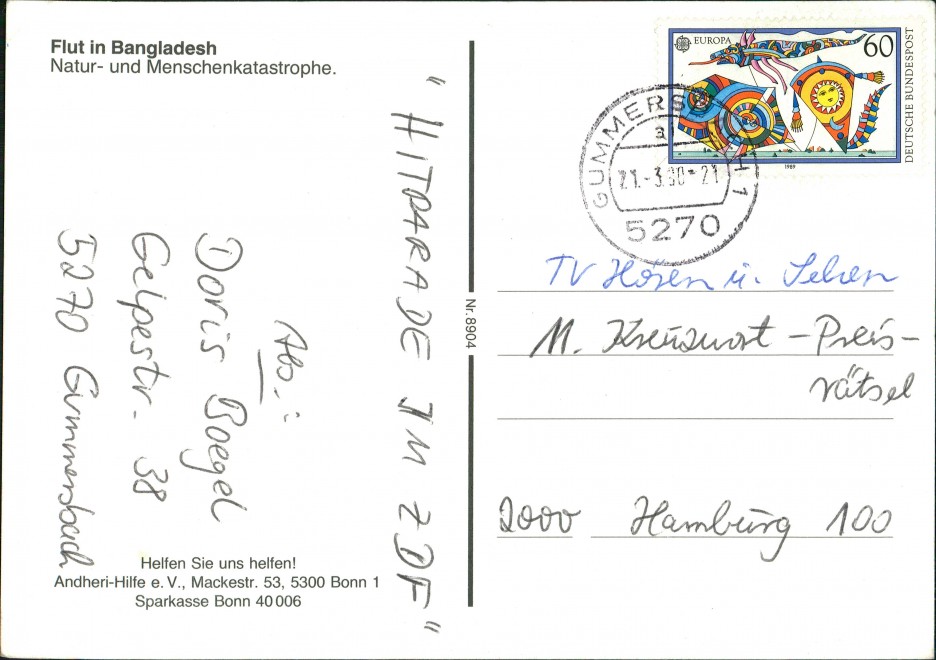 Flut in Bangladesh
Natur- und Menschenkatastrophe.
" HITPARADE IM ZDF "
Abs.:
Doris Boegel
Gelpestr. 38
5270 Gummersbach
Helfen Sie uns helfen!
Andheri-Hilfe e. V., Mackestr. 53, 5300 Bonn 1
Sparkasse Bonn 40 006
Nr. 8904
EUROPA
60
DEUTSCHE BUNDESPOST
1989
GUMMERSBACH 1
21.-3.90-21
5270
TV Hören u. Sehen
M. Kreuzwort - Preis-
rätsel
2000 Hamburg 100